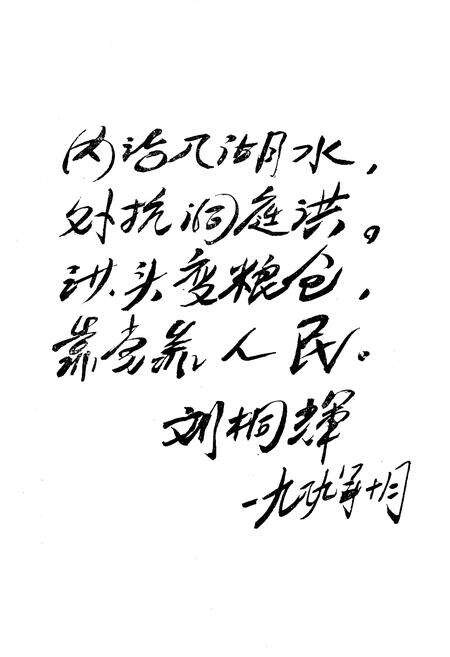 内治八湖水，
外抗洞庭洪。
洪头变粮仓，
靠党靠人民。
刘桐輝
一九 九年十 月